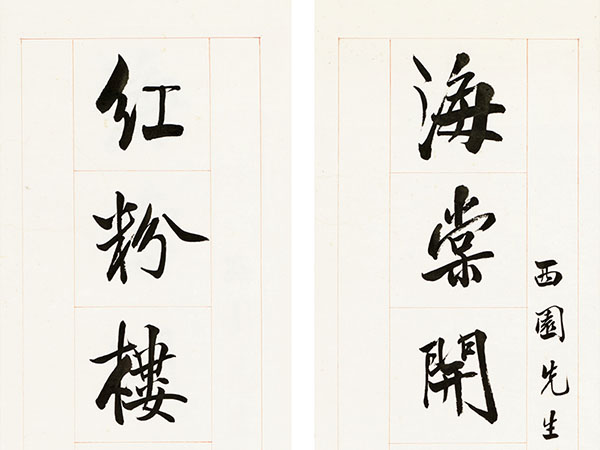 西園先生
海棠開
紅粉樓